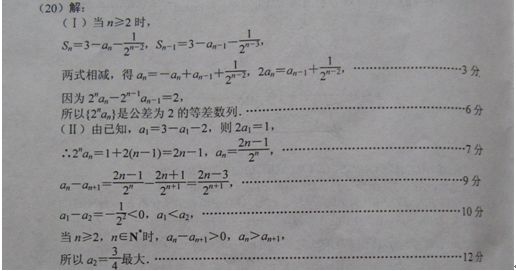 (20)解:
(Ⅰ)当 n≥2 时,
Sₙ=3-aₙ-1/2ⁿ⁻², Sₙ₋₁=3-aₙ₋₁-1/2ⁿ⁻³,
两式相减, 得 aₙ=-aₙ+aₙ₋₁+1/2ⁿ⁻², 2aₙ=aₙ₋₁+1/2ⁿ⁻², ……3分
因为 2ⁿaₙ-2ⁿ⁻¹aₙ₋₁=2,
所以{2ⁿaₙ}是公差为 2 的等差数列. ……6分
(Ⅱ)由已知, a₁=3-a₁-2, 则 2a₁=1,
∴2ⁿaₙ=1+2(n-1)=2n-1, aₙ=(2n-1)/2ⁿ, ……7分
aₙ-aₙ₊₁=(2n-1)/2ⁿ-(2n+1)/2ⁿ⁺¹=(2n-3)/2ⁿ⁺¹, ……9分
a₁-a₂=-1/2²<0, a₁<a₂, ……10分
当 n≥2, n∈N*时, aₙ-aₙ₊₁>0, aₙ>aₙ₊₁,
所以 a₂=3/4最大. ……12分